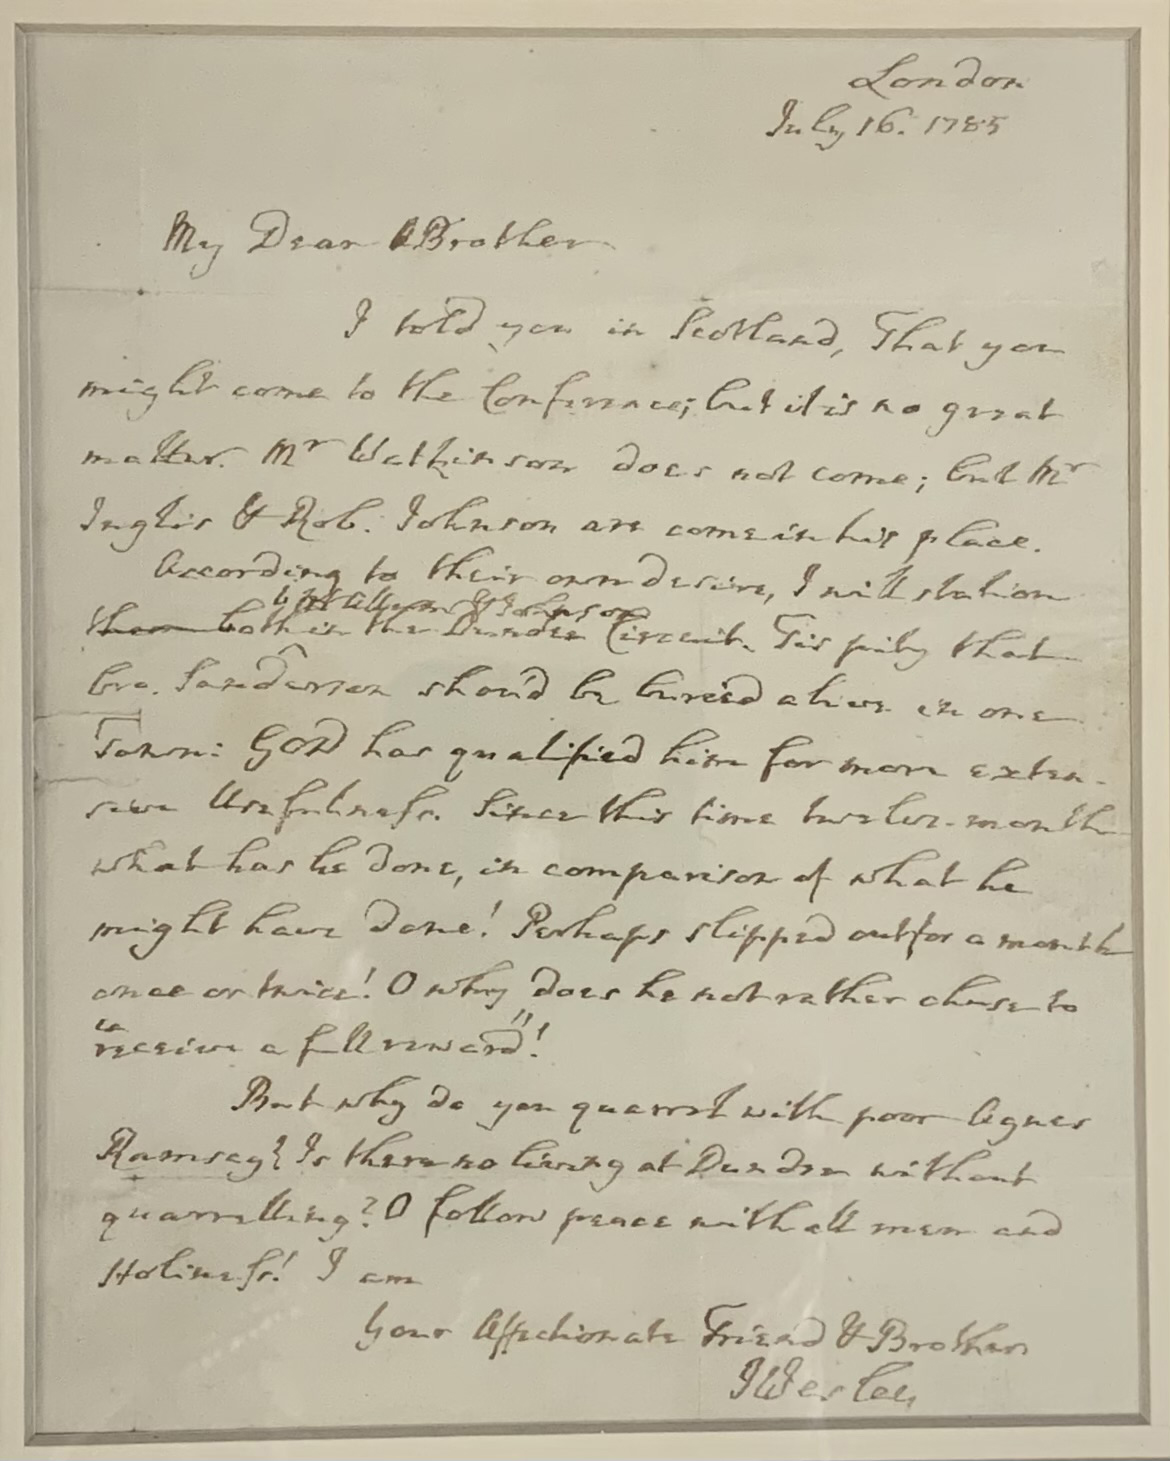 London
July 16. 1785
My Dear Brother
I told you in Scotland, That you
might come to the Conference; but it is no great
matter. Mr Watkinson does not come; but Mr
Inglis & Rob. Johnson are come in his place.
According to their own desire, I will station
Allen & Johnson
them both in the Dundee Circuit. Tis pity that
bro. Sanderson shou'd be buried alive in one
Town: GOD has qualified him for more exten-
sive Usefulness. Since this time twelve-month
what has he done, in comparison of what he
might have done! Perhaps slipped out for a month
once or twice! O why does he not rather chuse to
"receive a full reward"!
But why do you quarrel with poor Agnes
Ramsay? Is there no living at Dundee without
quarrelling? O follow peace with all men and
Holiness! I am
Your Affectionate Friend & Brother
J Wesley